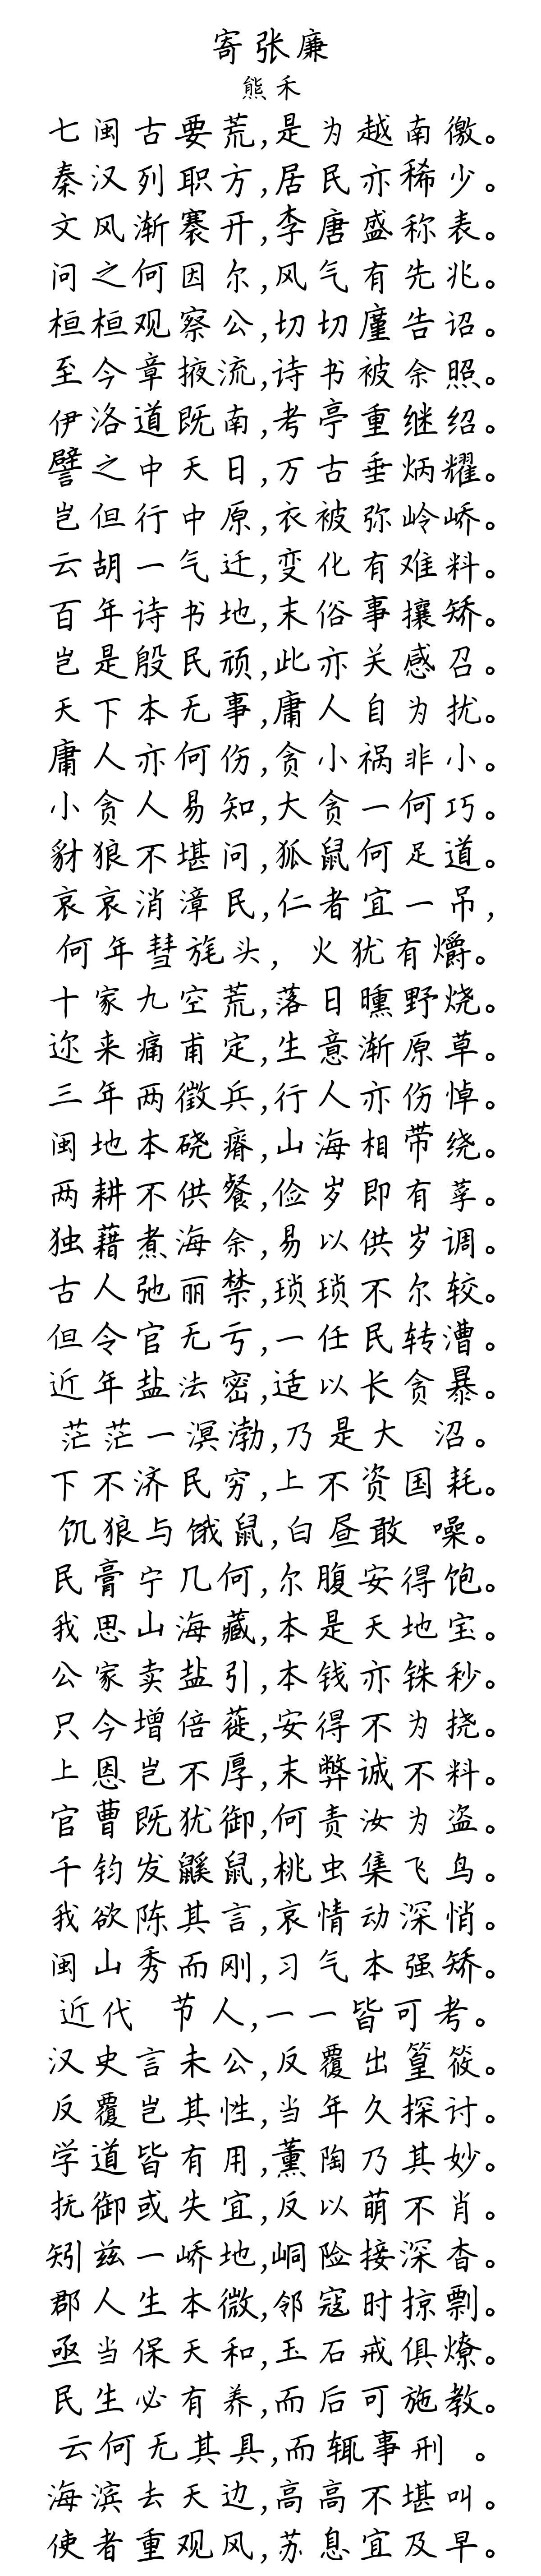 寄张廉
熊禾
七闽古要荒,是为越南徼。
秦汉列职方,居民亦稀少。
文风渐褰开,李唐盛称表。
问之何因尔,风气有先兆。
桓桓观察公,切切廑告诏。
至今章掖流,诗书被余照。
伊洛道既南,考亭重继绍。
譬之中天日,万古垂炳耀。
岂但行中原,衣被弥岭峤。
云胡一气迁,变化有难料。
百年诗书地,末俗事攘矫。
岂是殷民顽,此亦关感召。
天下本无事,庸人自为扰。
庸人亦何伤,贪小祸非小。
小贪人易知,大贪一何巧。
豺狼不堪问,狐鼠何足道。
哀哀消漳民,仁者宜一吊,
何年彗旄头,火犹有爝。
十家九空荒,落日曛野烧。
迩来痛甫定,生意渐原草。
三年两徵兵,行人亦伤悼。
闽地本硗瘠,山海相带绕。
两耕不供餐,俭岁即有莩。
独藉煮海余,易以供岁调。
古人弛丽禁,琐琐不尔较。
但令官无亏,一任民转漕。
近年盐法密,适以长贪暴。
茫茫一溟渤,乃是大 沼。
下不济民穷,上不资国耗。
饥狼与饿鼠,白昼敢 噪。
民膏宁几何,尔腹安得饱。
我思山海藏,本是天地宝。
公家卖盐引,本钱亦铢秒。
只今增倍蓰,安得不为挠。
上恩岂不厚,末弊诚不料。
官曹既犹御,何责汝为盗。
千钧发鼷鼠,桃虫集飞鸟。
我欲陈其言,哀情动深悄。
闽山秀而刚,习气本强矫。
近代 节人,一一皆可考。
汉史言未公,反覆出篁筱。
反覆岂其性,当年久探讨。
学道皆有用,薰陶乃其妙。
抚御或失宜,反以萌不肖。
矧兹一峤地,峒险接深杳。
郡人生本微,邻寇时掠剽。
亟当保天和,玉石戒俱燎。
民生必有养,而后可施教。
云何无其具,而辄事刑 。
海滨去天边,高高不堪叫。
使者重观风,苏息宜及早。